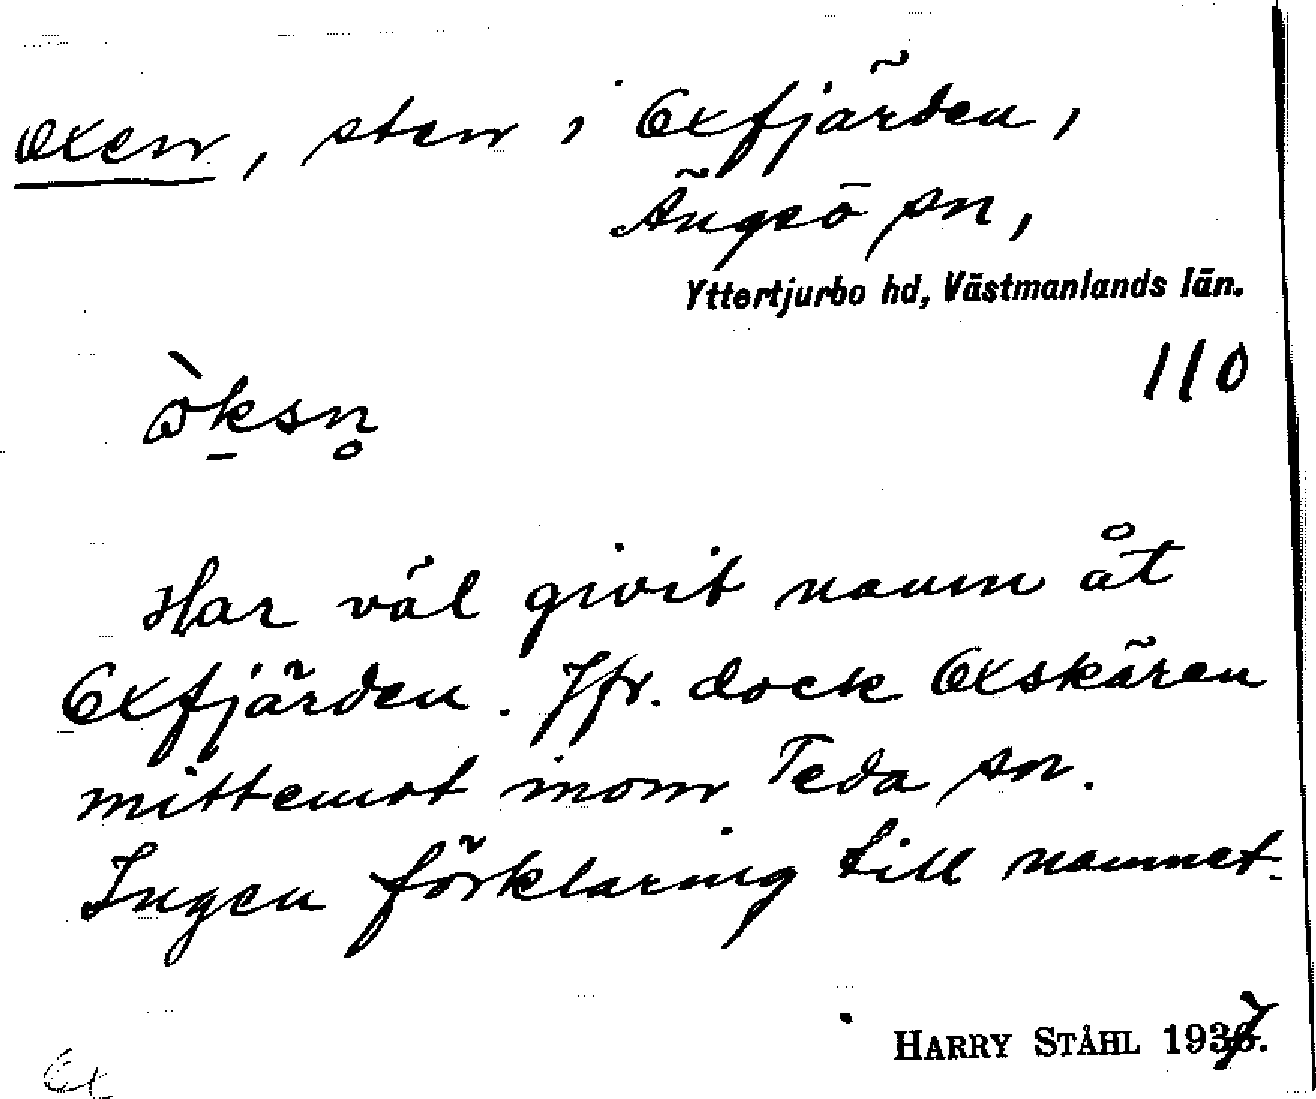 Oxen, sten i Oxfjärden,
Ängsö sn,
Yttertjurbo hd, Västmanlands län.
110
òksn̥
Har väl givit namn åt
Oxfjärden. Jfr. dock Oxskären
mittemot inom Teda sn.
Ingen förklaring till namnet.
HARRY STÅHL 1937.
Ox